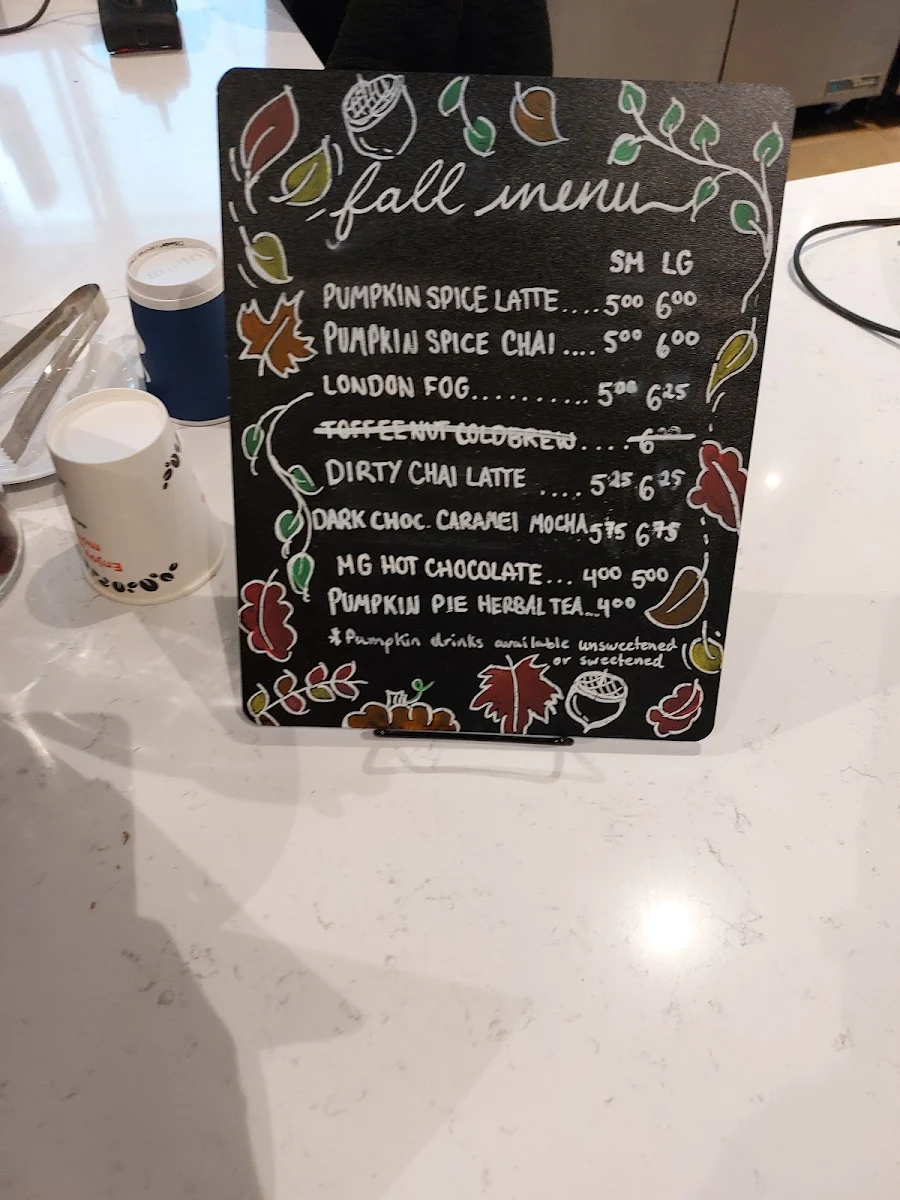 fall menu
SM LG
PUMPKIN SPICE LATTE....500 600
PUMPKIN SPICE CHAI....500 600
LONDON FOG..........500 625
TOFFEENUT COLDBREW....6
DIRTY CHAI LATTE ....525 625
DARK CHOC. CARAMEl MOCHA 575 675
MG HOT CHOCOLATE...400 500
PUMPKIN PIE HERBAL TEA...400
*Pumpkin drinks available unsweetened
or sweetened
Enjoy